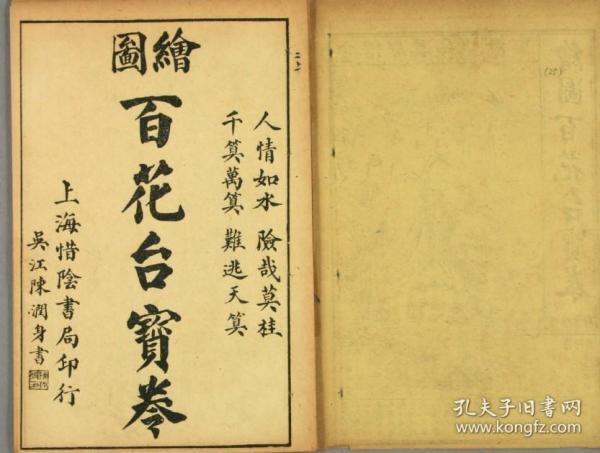 繪圖
百花台寶卷
人情如水 險哉莫挂
千算萬算 難逃天算
上海惜陰書局印行
吳江陳潤身書
孔夫子旧书网
www.kongfz.com